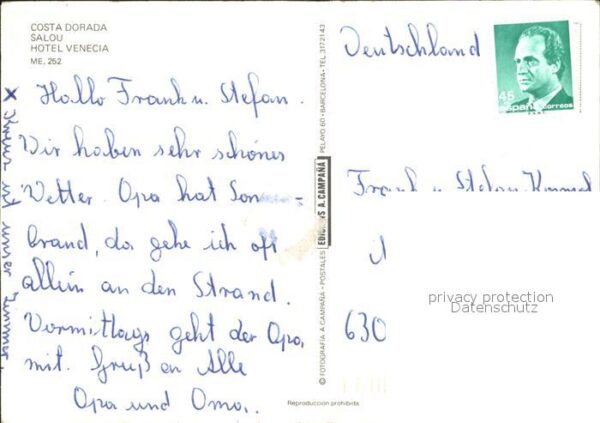 COSTA DORADA
SALOU
HOTEL VENECIA
ME, 262
Hallo Frank u. Stefan.
Wir haben sehr schönes
Wetter. Opa hat Son-
brand, da gehe ich oft
allein an den Strand.
Vormittags geht der Opa
mit. Gruß an Alle
Opa und Oma.
x unser Zimmer
© FOTOGRAFIA A. CAMPAÑA - POSTALES EDICIONES A. CAMPAÑA PELAYO 60 - BARCELONA - TEL. 317 21 43
Reproduccion prohibida
Deutschland
45
España correos
Frank u Stefan
630
privacy protection
Datenschutz